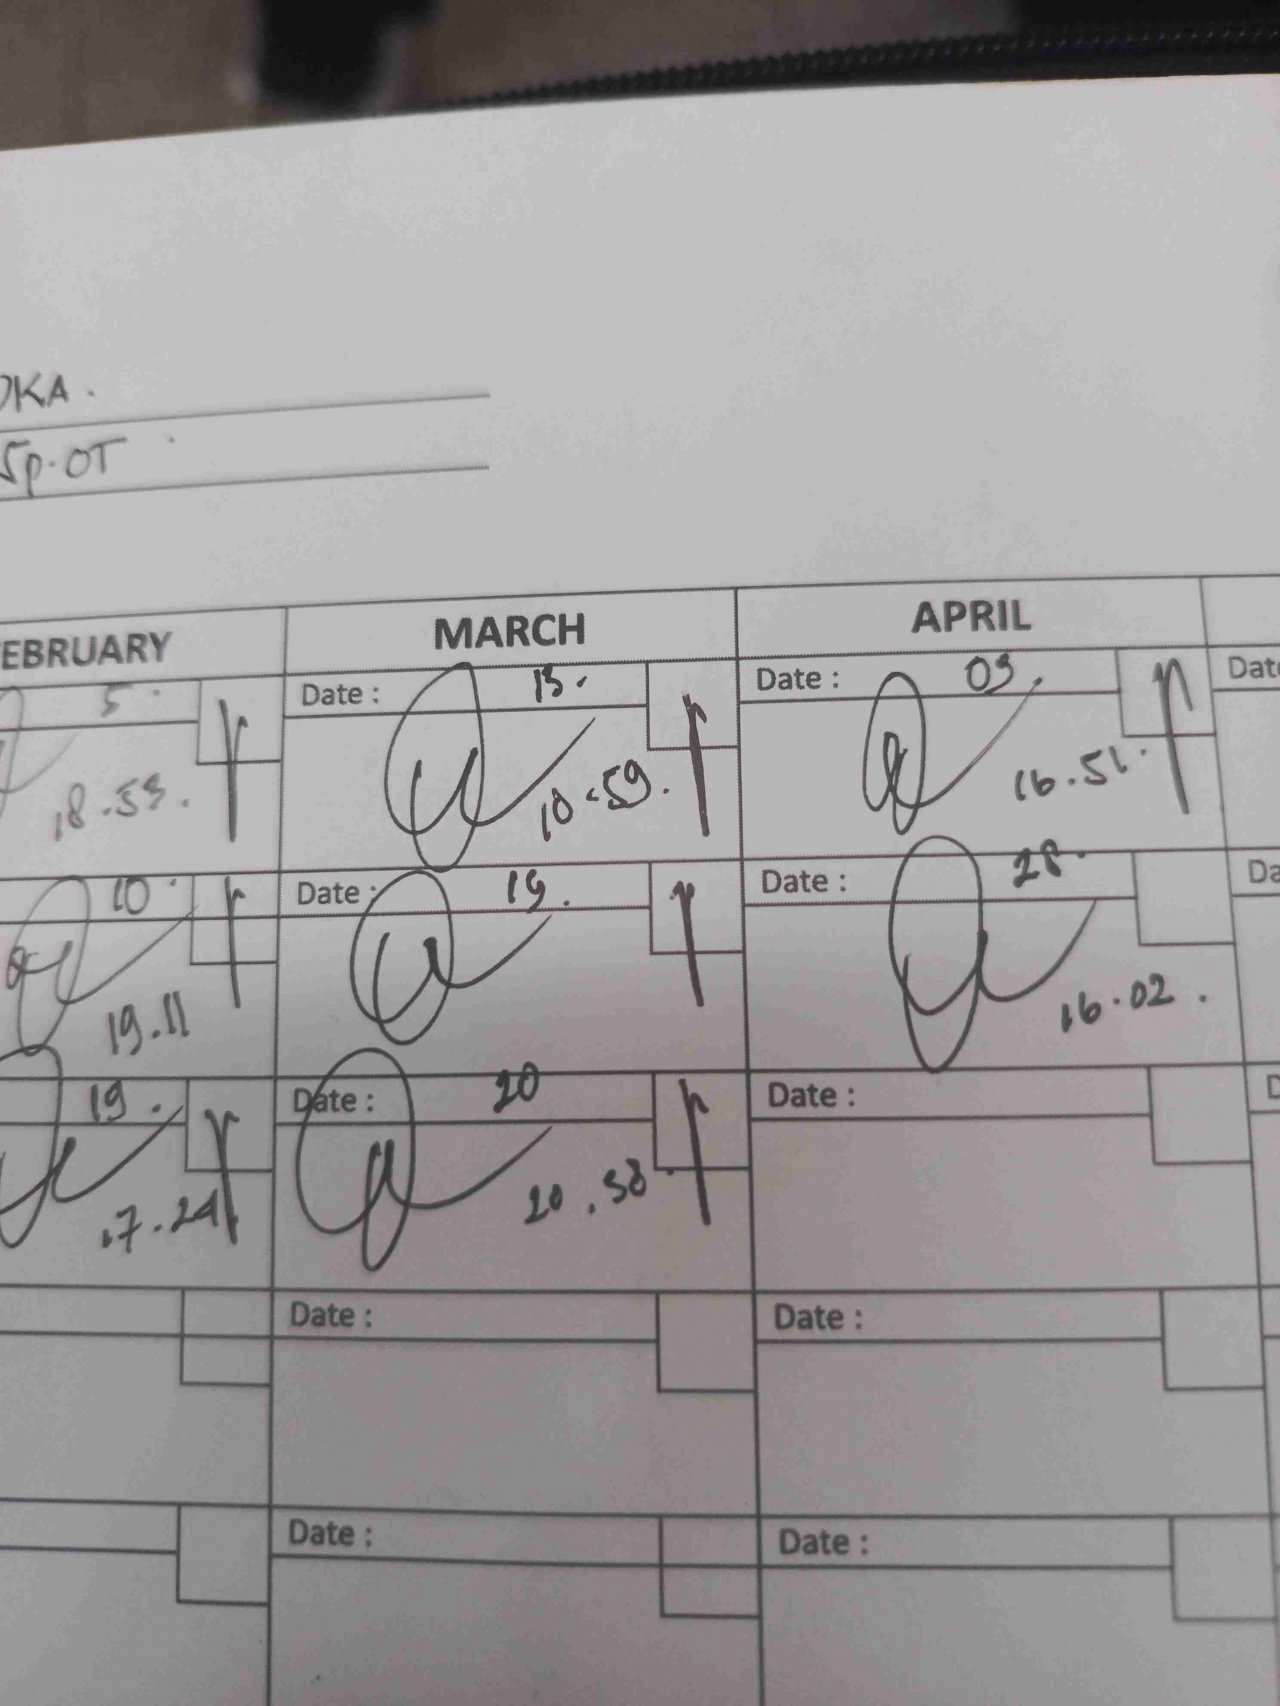 OKA.
Sp.OT
EBRUARY MARCH APRIL
5. Date : 13. Date : 03. Date
18.53. 10.59. 16.51.
10. Date : 19. Date : 28. Da
19.11 16.02.
19. Date : 20 Date : D
17.24 20.38.
Date : Date :
Date : Date :